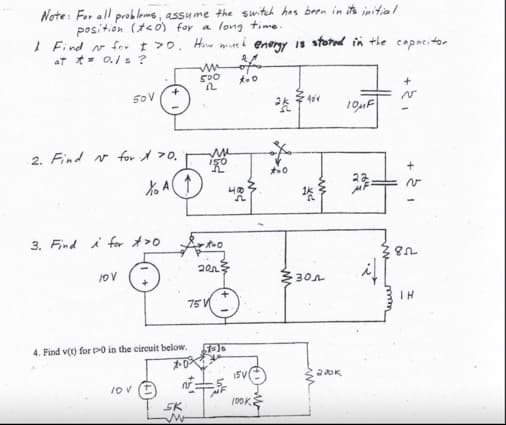 Note: For all problems, assume the switch has been in its initial
position (t<0) for a long time.
1 Find v for t>0. How much energy is stored in the capacitor
at t = 0.1 s ?
500
Ω
t=0
50V
+
2k
Ω
10μF
+
v
-
2. Find v for t >0.
150
Ω
t=0
1/10 A
400
Ω
1k
Ω
22
μF
+
v
-
3. Find i for t>0
t=0
10V
20Ω
75V
30Ω
i
8Ω
1H
4. Find v(t) for t>0 in the circuit below.
t=1s
t=0
10V
v
5
μF
15V
100K
200K
5K